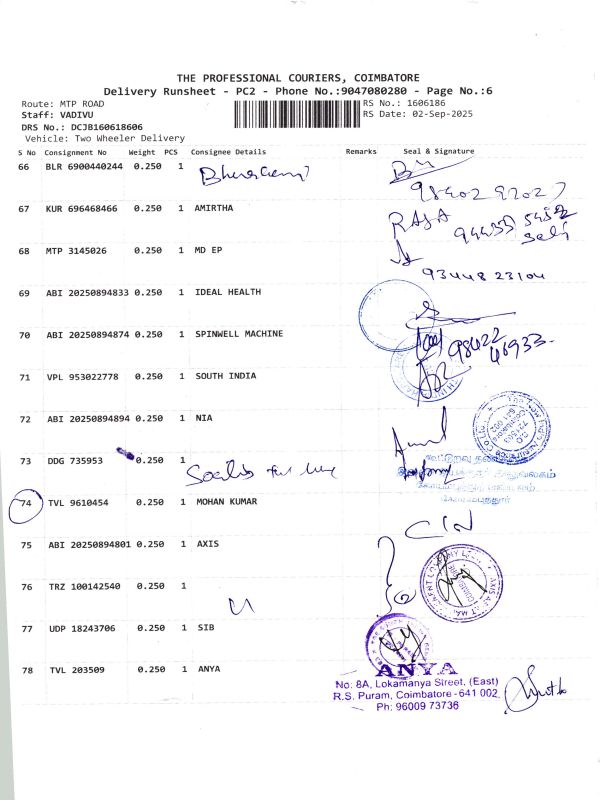 THE PROFESSIONAL COURIERS, COIMBATORE
Delivery Runsheet - PC2 - Phone No.:9047080280 - Page No.:6
Route: MTP ROAD RS No.: 1606186
Staff: VADIVU RS Date: 02-Sep-2025
DRS No.: DCJB160618606
Vehicle: Two Wheeler Delivery
S No Consignment No Weight PCS Consignee Details Remarks Seal & Signature
66 BLR 6900440244 0.250 1
67 KUR 696468466 0.250 1 AMIRTHA RAJA
68 MTP 3145026 0.250 1 MD EP
93448 23104
69 ABI 20250894833 0.250 1 IDEAL HEALTH
70 ABI 20250894874 0.250 1 SPINWELL MACHINE
98422 46933
71 VPL 953022778 0.250 1 SOUTH INDIA
72 ABI 20250894894 0.250 1 NIA
73 DDG 735953 0.250 1
74 TVL 9610454 0.250 1 MOHAN KUMAR
75 ABI 20250894801 0.250 1 AXIS
76 TRZ 100142540 0.250 1
77 UDP 18243706 0.250 1 SIB
78 TVL 203509 0.250 1 ANYA
ANYA
No: 8A, Lokamanya Street, (East)
R.S. Puram, Coimbatore - 641 002.
Ph: 96009 73736